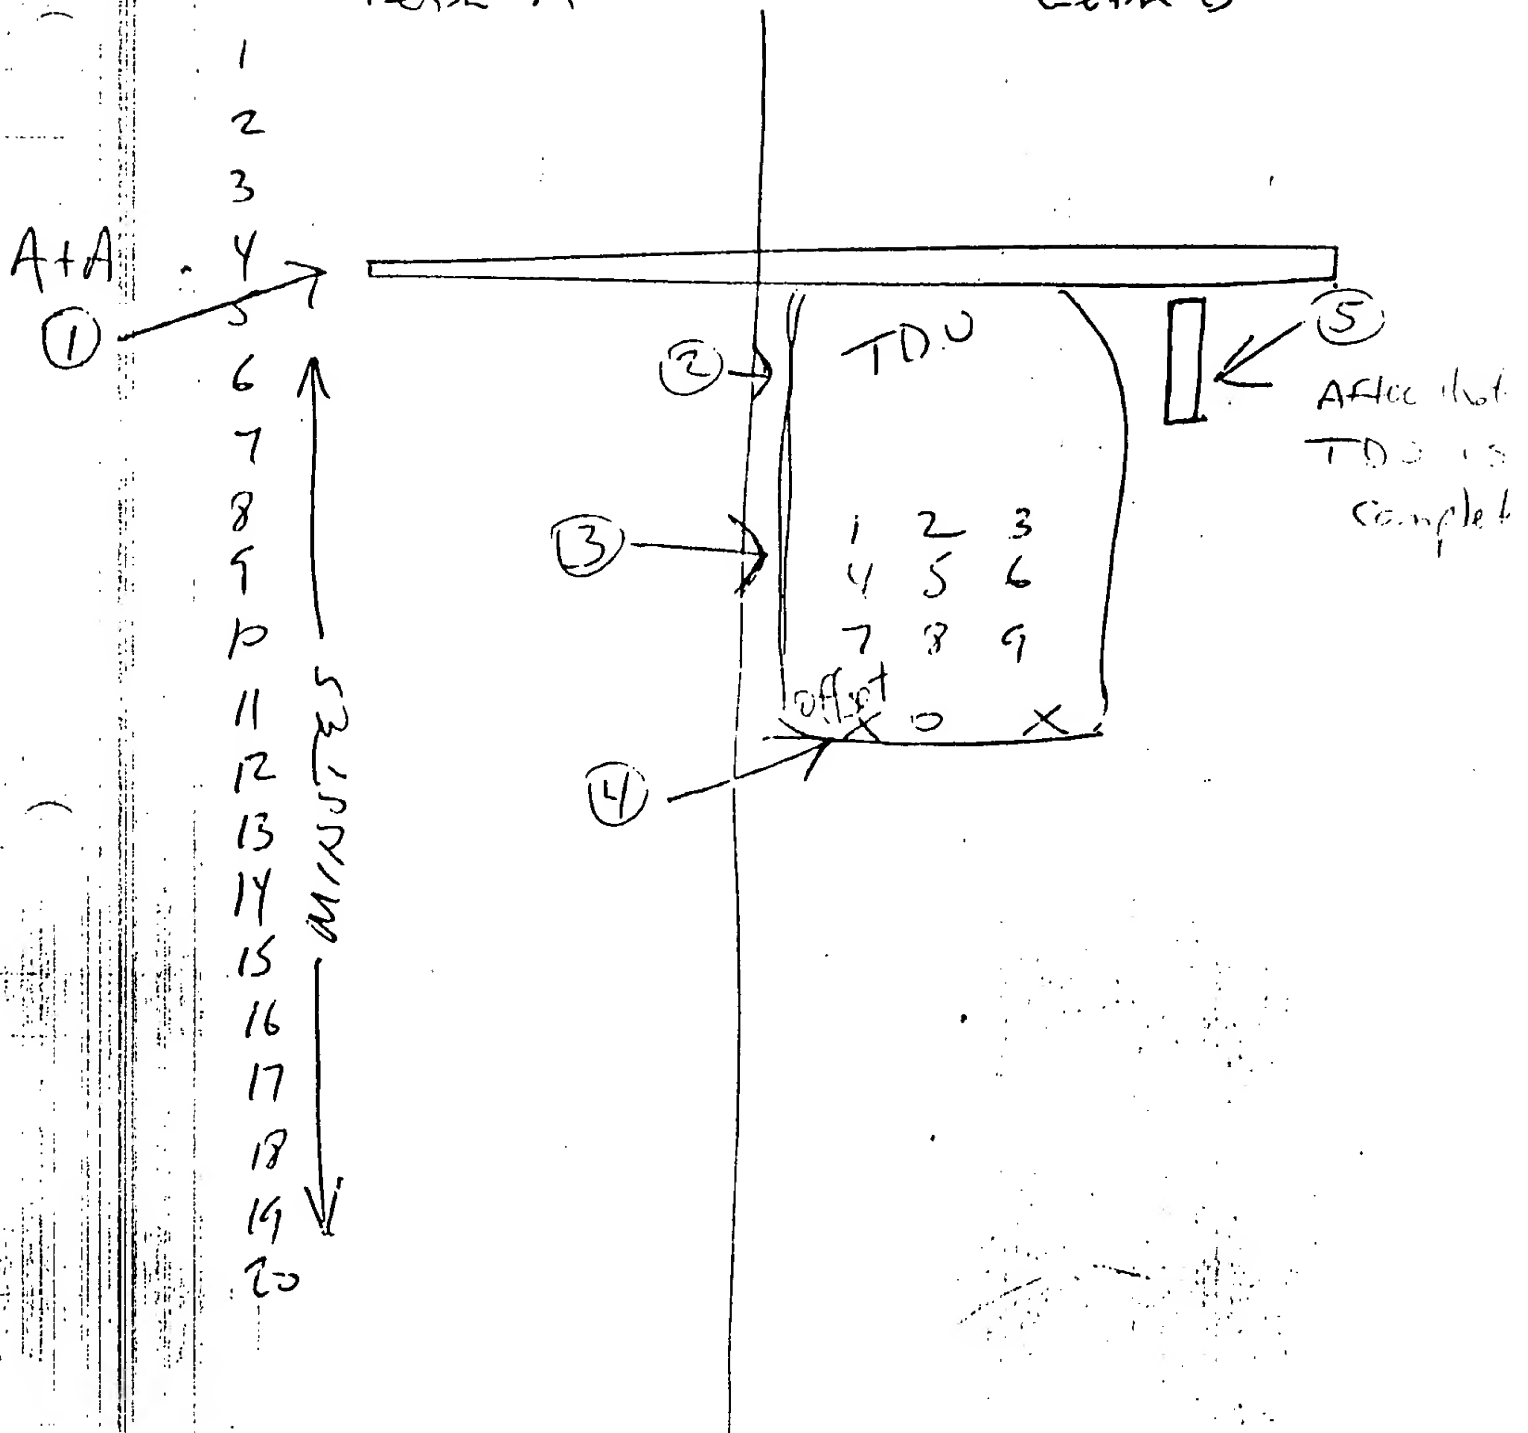 1
2
3
A+A 4
① 5
6
7
8
9
10
11
12
13
14
15
16
17
18
19
20
MINUTES
②
TDU
③
1 2 3
4 5 6
7 8 9
offset
X 0 X
④
⑤
After that
TDU is
complet